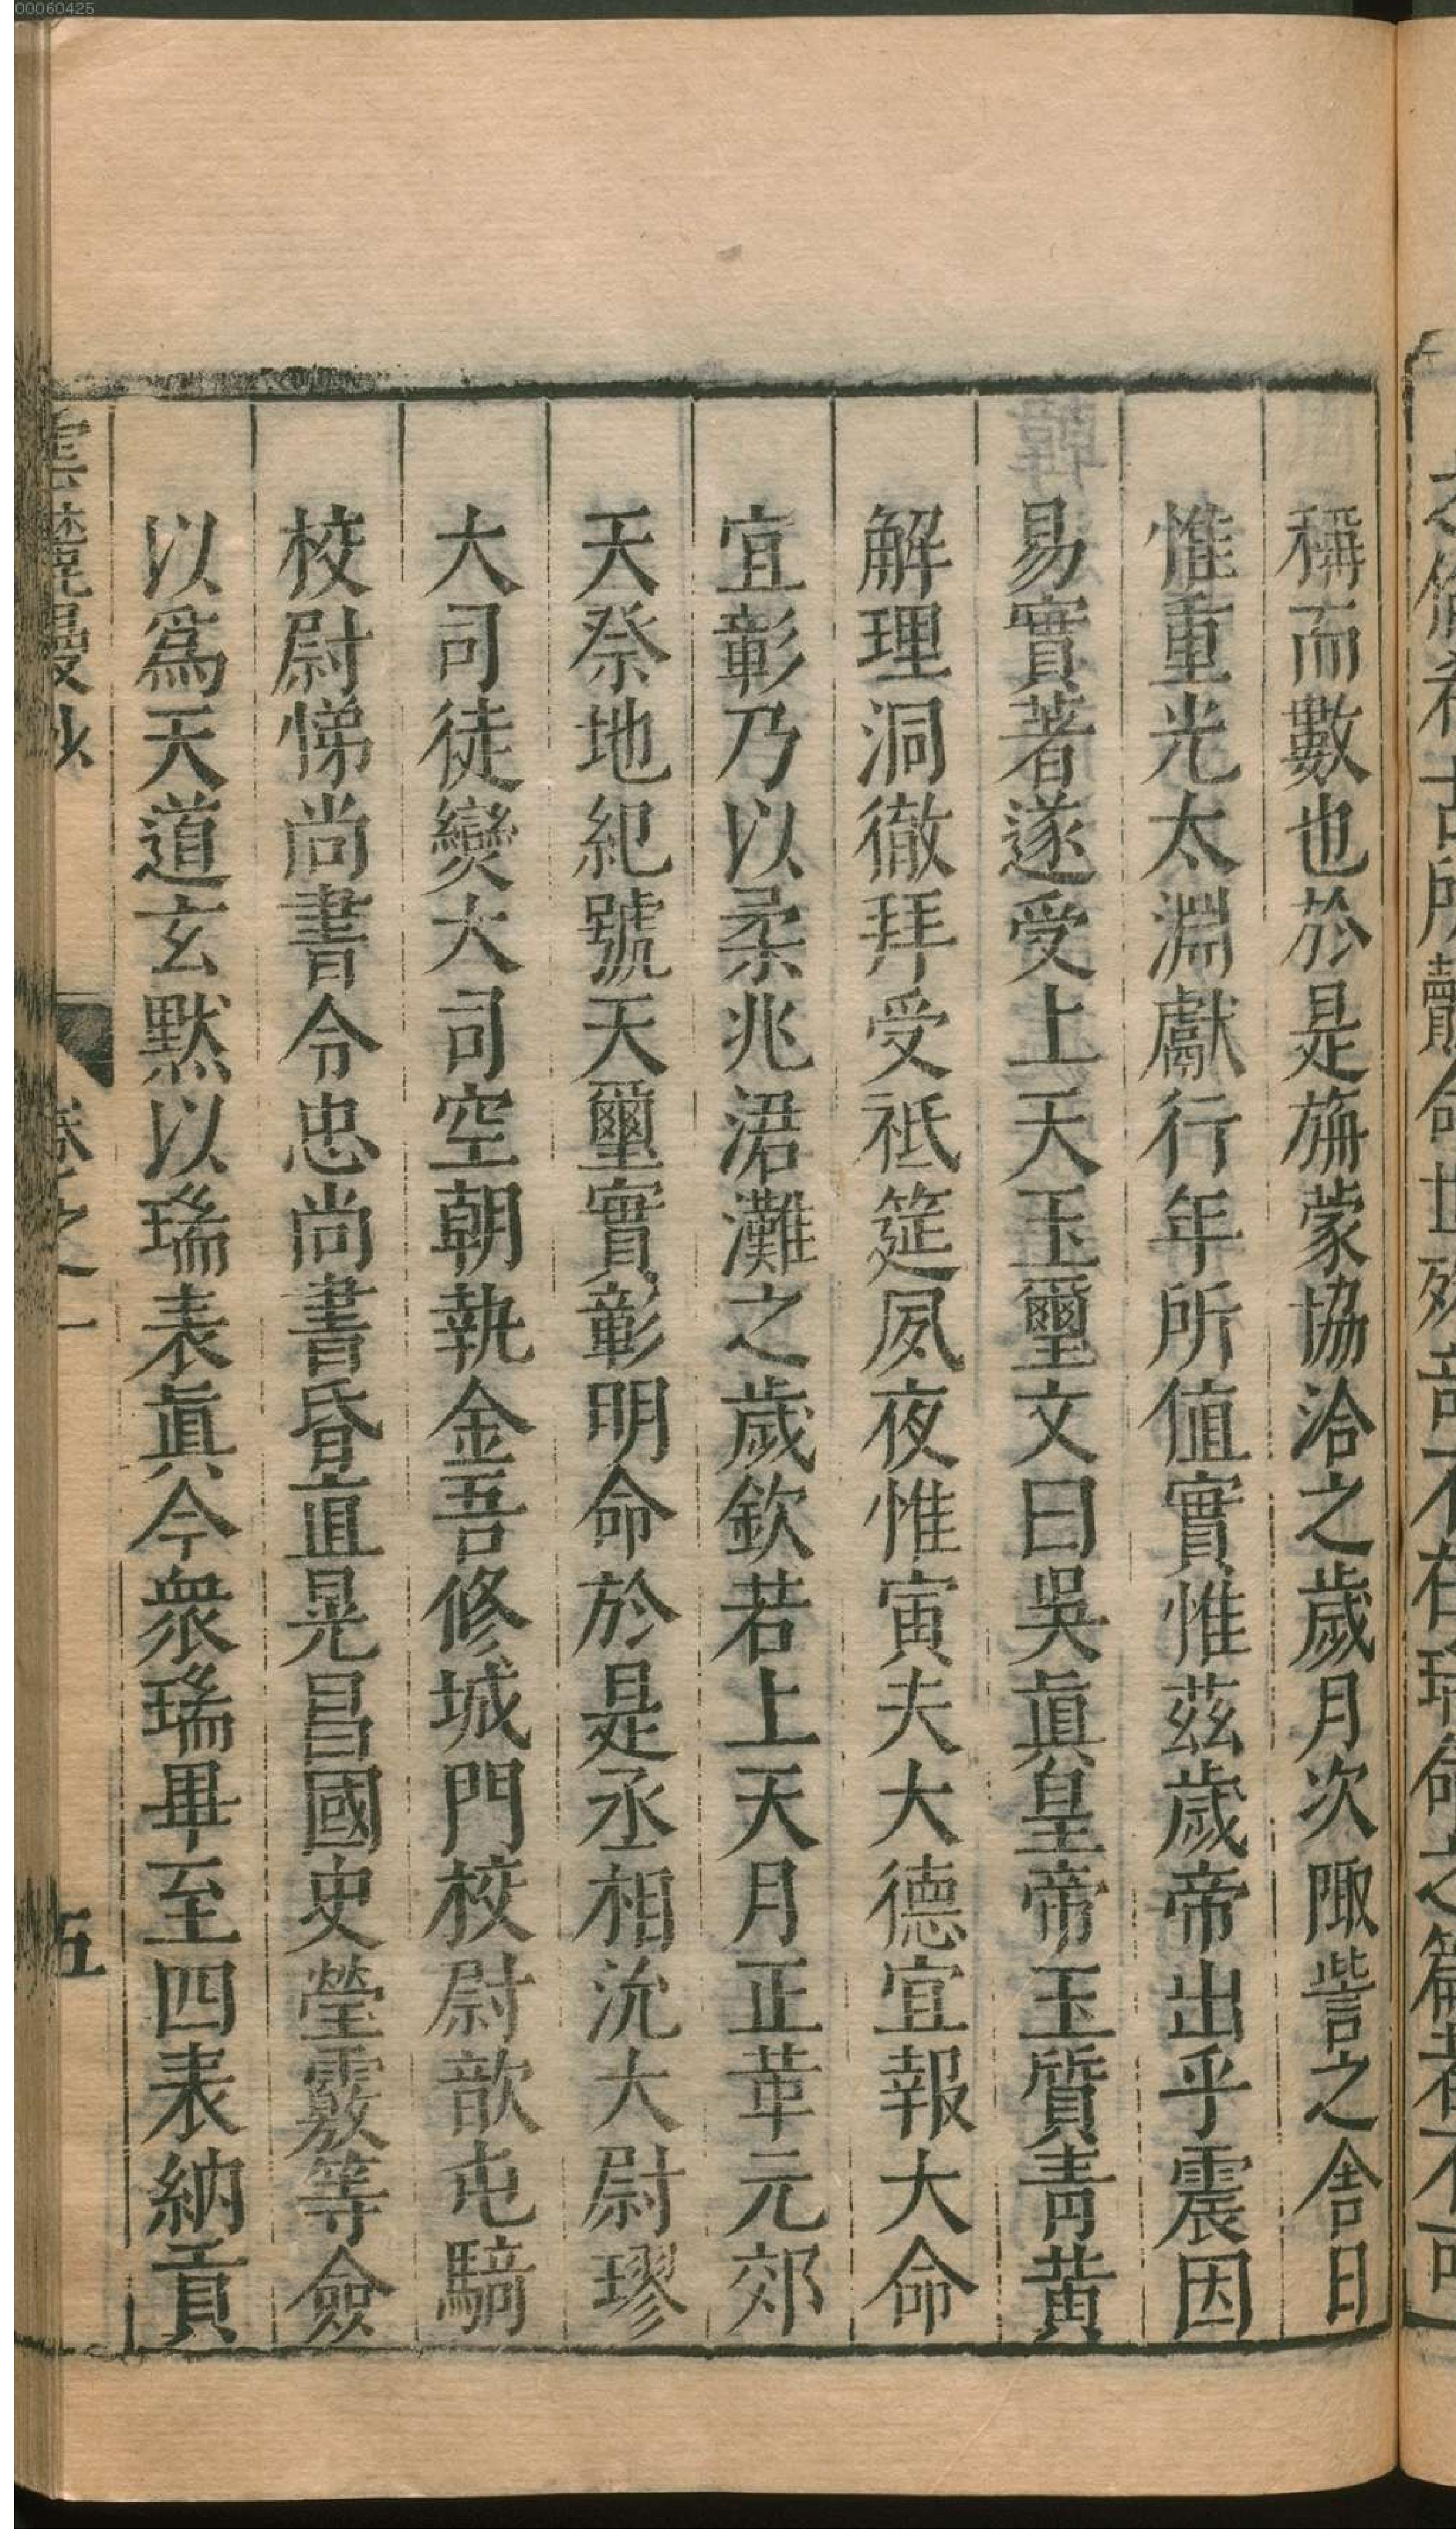 00060425
稱而數也於是旃蒙協洽之歲月次陬訾之舍日
惟重光太淵獻行年所值實惟茲歲帝出乎震因
易實著遂受上天玉璽文曰吳眞皇帝玉質青黃
解理洞徹拜受祗筵夙夜惟寅夫大德宜報大命
宜彰乃以柔兆涒灘之歲欽若上天月正革元郊
天祭地紀號天璽實彰明命於是丞相沇大尉璆
大司徒爕大司空朝執金吾修城門校尉歆屯騎
校尉悌尚書令忠尚書昏直晃昌國史瑩覈等僉
以爲天道玄默以瑞表眞今衆瑞畢至四表納貢
雲麓漫抄
卷之一
五